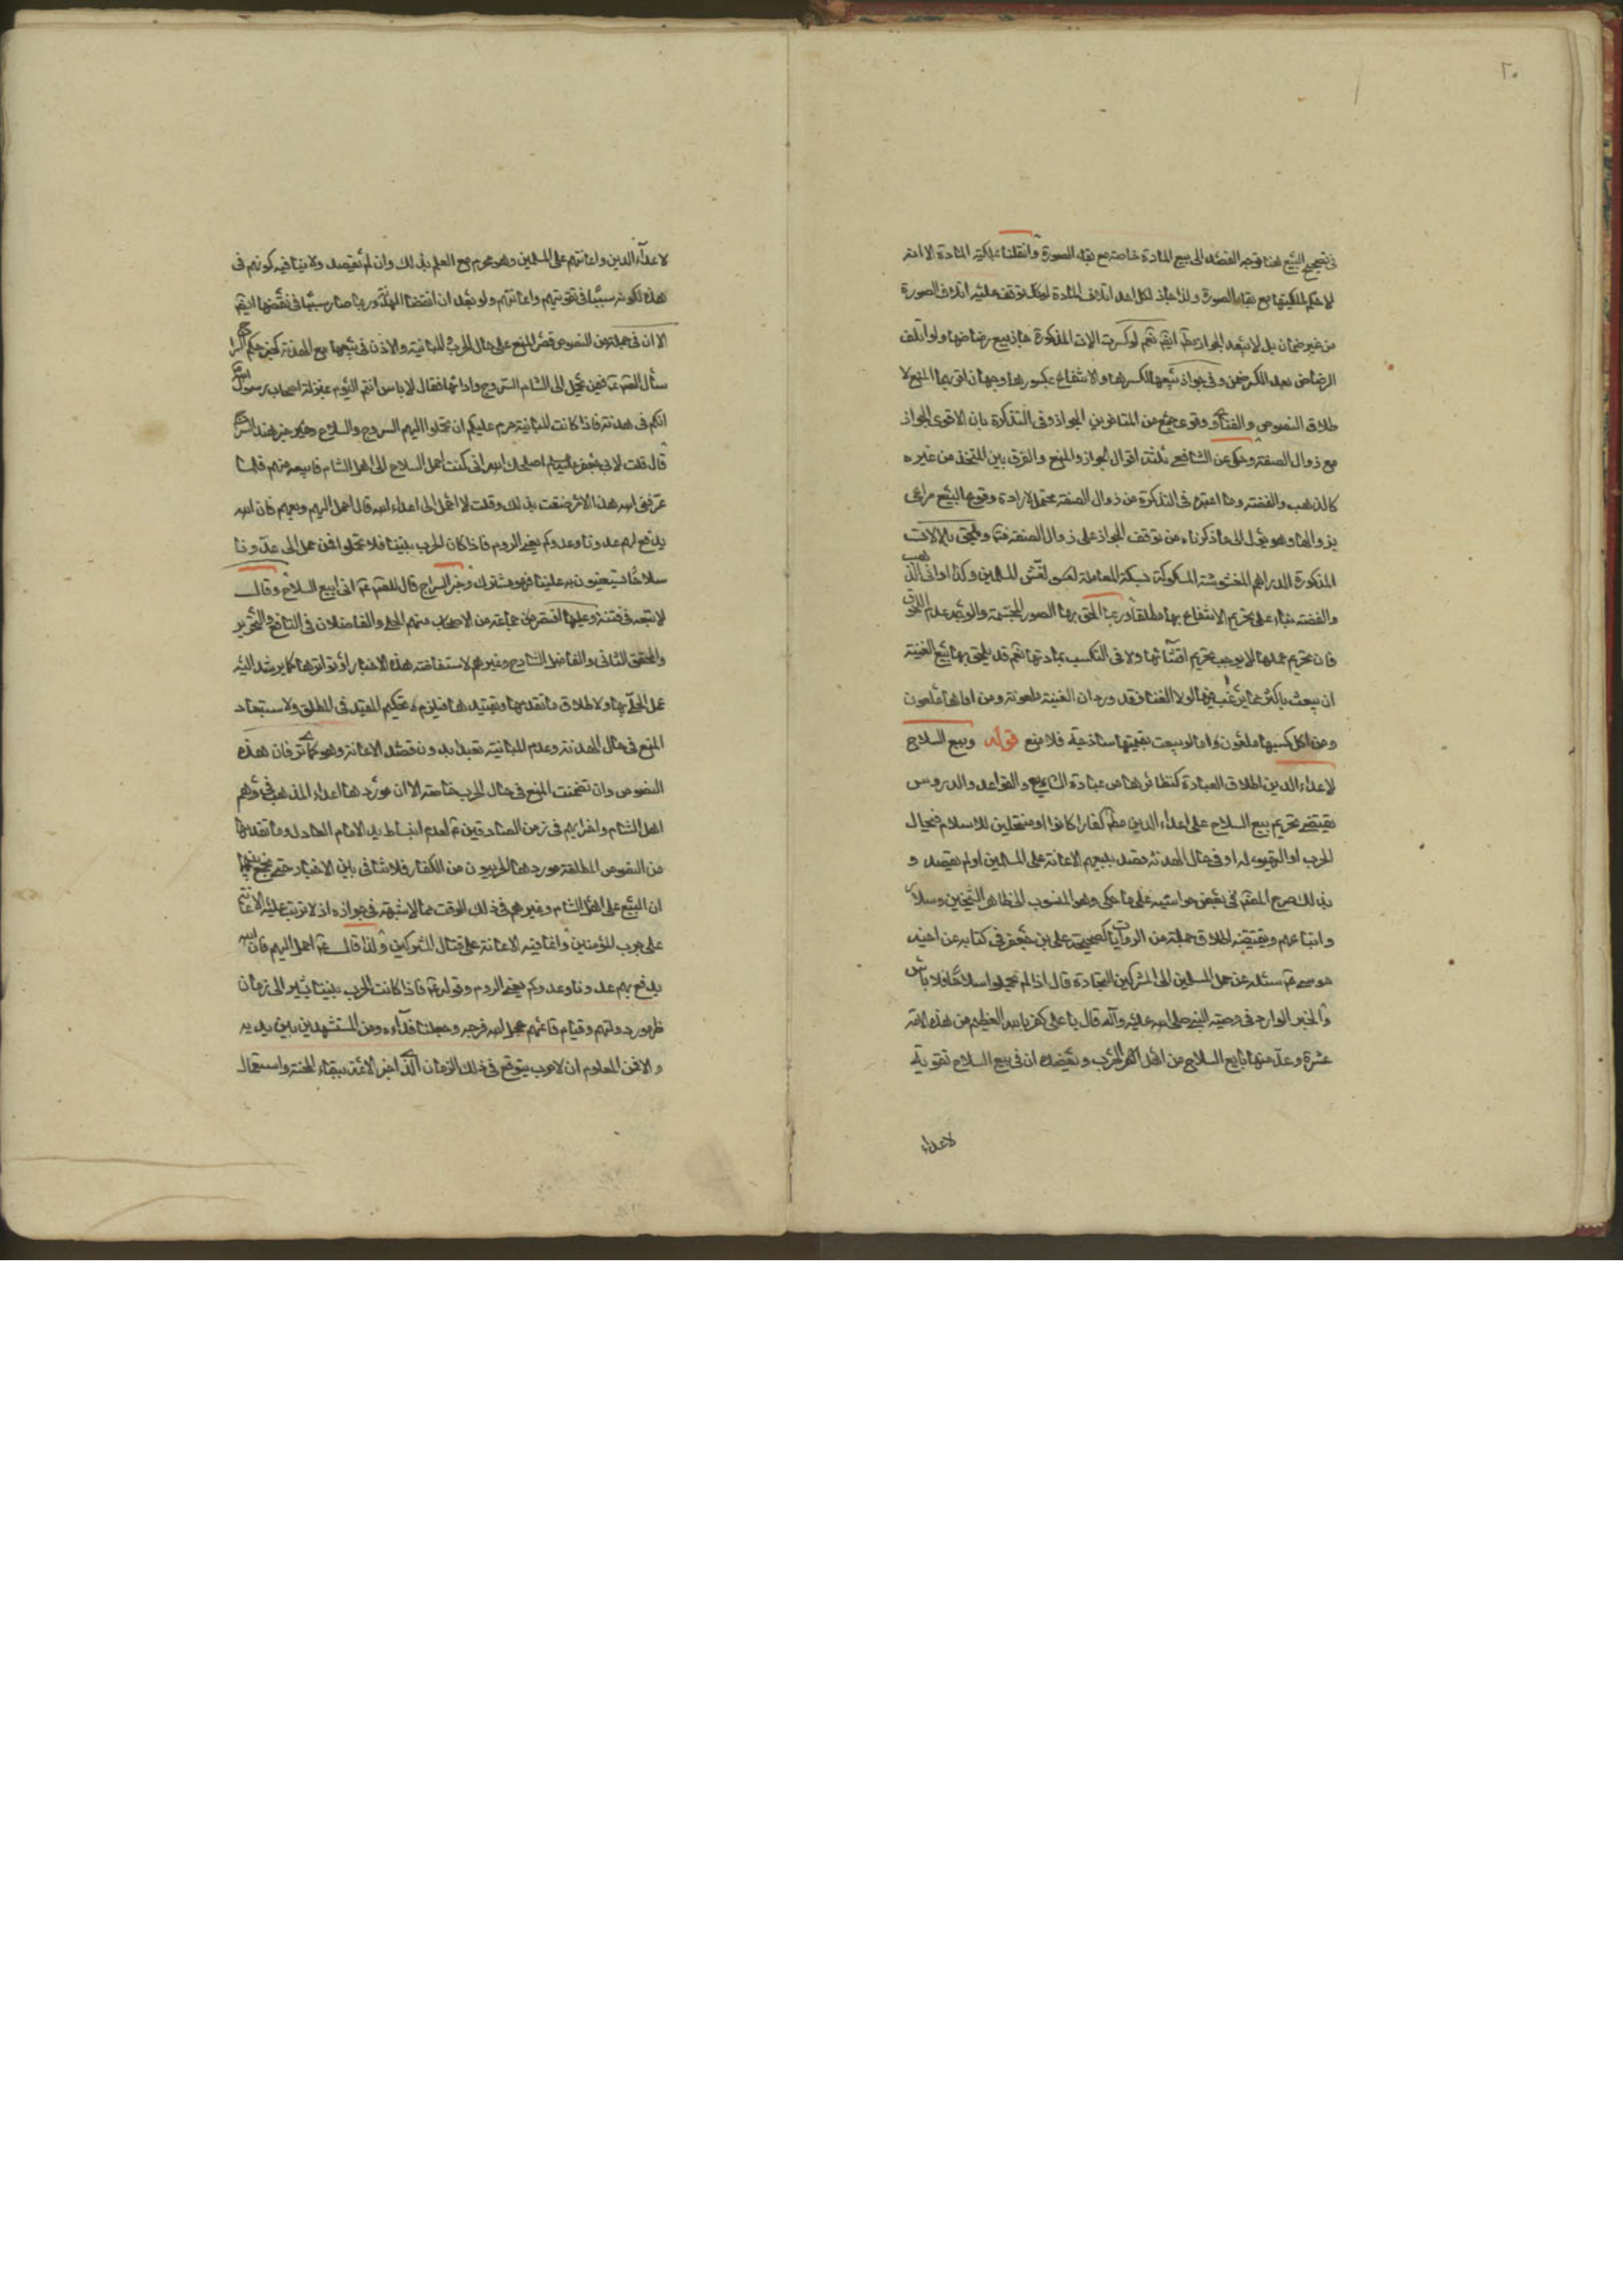 ٢٠
في تصحيح البيع هنا توجه القصد الى بيع المادة خاصة مع بقاء الصورة وان قلنا بملكية المادة الا انه
لا حكم لملكيتها مع بقاء الصورة ولذا جاز لكل احد اتلاف المادة لو توقف عليه اتلاف الصورة
من غير ضمان بل لا يبعد الجواز نعم لو كسرت الات المذكورة جاز بيع رضاضها ولو اتلف
الرضاض بعد الكسر ضمن وفي جواز بيعها لكسرها والانتفاع بمكسورها وجهان اقربهما المنع لا
طلاق النصوص والفتاوي وقوى جمع من المتاخرين الجواز وفي التذكرة بان الاقوى الجواز
مع زوال الصفة وحكى عن الشافعي ثلثة اقوال الجواز والمنع والفرق بين المتخذ من غيره
كالذهب والفضة وما اعتبره في التذكرة من زوال الصفة محتمل لارادة وقوع البيع مراعى
بزوالها وهو يؤل الى ما ذكرناه من توقف الجواز على زوال الصفة ويلحق بالالات
المذكورة الدراهم المغشوشة المسكوكة بسكة المعاملة لغش المسلمين وكذا اواني الذهب
والفضة بناء على تحريم الانتفاع بها مطلقا وربما الحق بها الصور المجسمة والوجه عدم اللحوق
فان تحريم عملها لا يوجب تحريم اقتنائها ولا في التكسب بمادتها نعم قد يلحق بها بيع المغنية
ان بيعت باكثر مما يرغب فيها لولا الغنا فقد ورد ان المغنية ملعونة ومن اواها ملعون
ومن اكل كسبها ملعون واما لو بيعت بقيمتها ساذجية فلا منع قوله وبيع السلاح
لاعداء الدين اطلاق العبارة كنظائرها من عبارة الشرايع والقواعد والدروس
يقتضي تحريم بيع السلاح على اعداء الدين مطلقا كفارا كانوا او منتحلين للاسلام في حال
الحرب او التهيوء له او في حال الهدنة قصد ببيعهم الاعانة على المسلمين او لم يقصد و
بذلك صرح المصنف في بعض حواشيه على ما حكى وهو المنسوب الى ظاهر الشيخين وسلار
واتباعهم ويقتضيه اطلاق جملة من الروايات كصحيحة علي بن جعفر في كتابه عن اخيه
موسى ع سئله عن حمل المسلمين الى المشركين التجارة قال اذا لم تحملوا سلاحا فلا باس
والخبر الوارد في وصية النبي صلى الله عليه وآله قال يا علي كفر بالله العظيم من هذه الامة
عشرة وعد منها بايع السلاح من اهل الحرب ويعضده ان في بيع السلاح تقوية
لاعداء
لاعداء الدين واعانتهم على المسلمين وهو محرم مع العلم بذلك وان لم يقصد ولا ينافيه كونهم في
هذه لكونه سببا في تقويتهم واعانتهم ولو بعد انقضا الهدنة وربما صار سببا في نقضها ايضا
الا ان في جملة من النصوص قصر المنع على حال الحرب المباينة والاذن في بيعها مع الهدنة كخبر حكم السراج
سأل الصادق ع فيمن يحمل الى الشام السروج واداتها فقال لا باس انتم اليوم بمنزلة اصحاب رسول الله
انكم في هدنة فاذا كانت المباينة حرم عليكم ان تحملوا اليهم السروج والسلاح وخبر هند السراج
قال قلت لابي جعفر عليه السلام اصلحك الله اني كنت احمل السلاح الى اهل الشام فابيعه منهم فلما
عرفني الله هذا الامر ضقت بذلك وقلت لا احمل الى اعداء الله قال احمل اليهم وبعهم فان الله
يدفع بهم عدونا وعدوكم يعني الروم فاذا كان الحرب بيننا فلا تحملوا فمن حمل الى عدونا
سلاحا يستعينون به علينا فهو مشرك وخبر السراج قال للصادق ع اني ابيع السلاح وقال
لا تبعه في فتنة وعليها اقتصر جماعة من الاصحاب منهم الحلي والفاضلان في النافع والتحرير
والمحقق الثاني والفاضل الشارح وغيرهم لاستفاضة هذه الاخبار او تواترها كما يرشد اليه
عمل الحلي بها ولاطلاق ما تقدمها وتقييد هذه فيلزم تحكيم المقيد في المطلق ولاستبعاد
المنع في حال الهدنة وعدم المباينة تعبدا بدون قصد الاعانة وهو كما ترى فان هذه
النصوص وان تضمنت المنع في حال الحرب خاصة الا ان مورد ها اعداء المذهب وهم
اهل الشام واضرابهم في زمن الصادقين ع لعدم انبساط يد الامام العادل وما تقدمها
من النصوص المطلقة مورد ها الحربيون من الكفار فلا تنافي بين الاخبار حتى يجمع بينها
ان البيع على اهل الشام وغيرهم في ذلك الوقت مما لا شبهة في جوازه اذ لا ترتب عليه الاعانة
على حرب المؤمنين وانما فيه الاعانة على قتال المشركين ولذا قال ع احمل اليهم فان الله
يدفع بهم عدونا وعدوكم يعني الروم وقوله ع فاذا كانت الحرب بيننا يشير الى زمان
ظهور دولتهم وقيام قائمهم عجل الله فرجه وجعلنا فداءه ومن المستشهدين بين يديه
والا فمن المعلوم ان لا حرب يتوقع في ذلك الزمان الذي اخبر الائمة ببقاء المحنة واستعمال